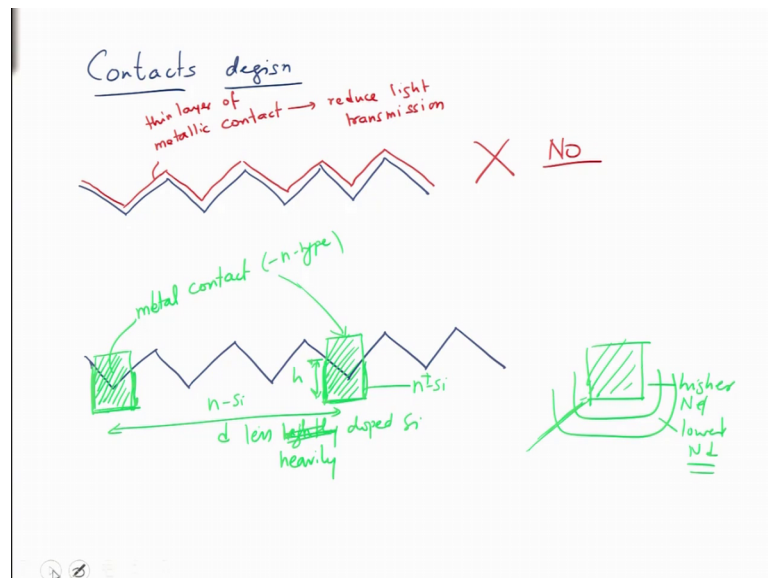 Contacts degisn
thin layer of
metallic contact → reduce light
transmission
X NO
metal contact (-n-type)
h
n-Si
n+Si
d less doped Si
heavily
higher
Nd
lower
Nd